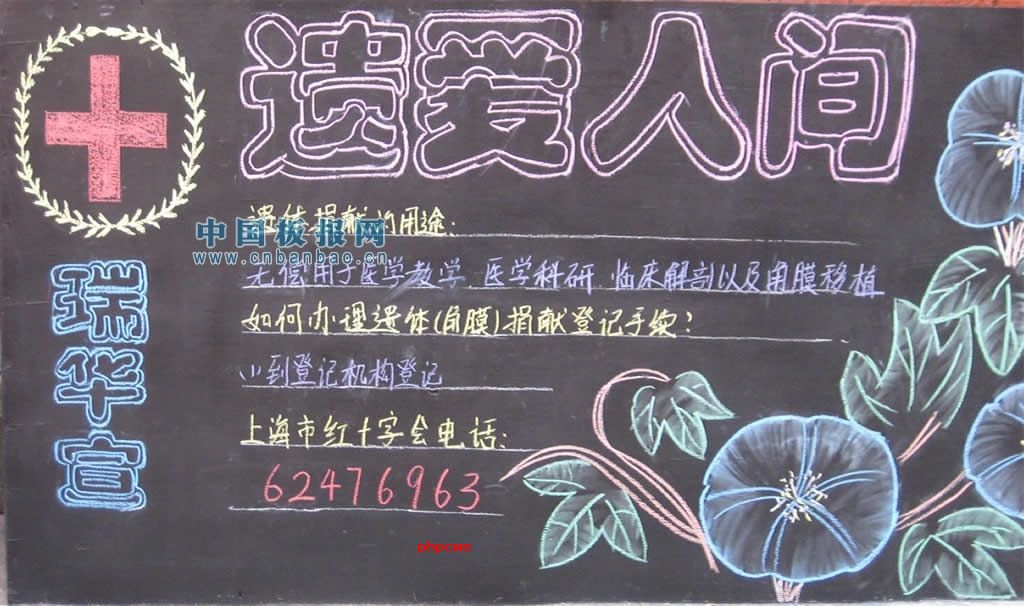 遗爱人间
遗体捐献的用途：
中国板报网
www.cnbanbao.cn
无偿用于医学教学.医学科研.临床解剖以及角膜移植
如何办理遗体(角膜)捐献登记手续？
(1)到登记机构登记
上海市红十字会电话：
62476963
瑞华宣
phpcms